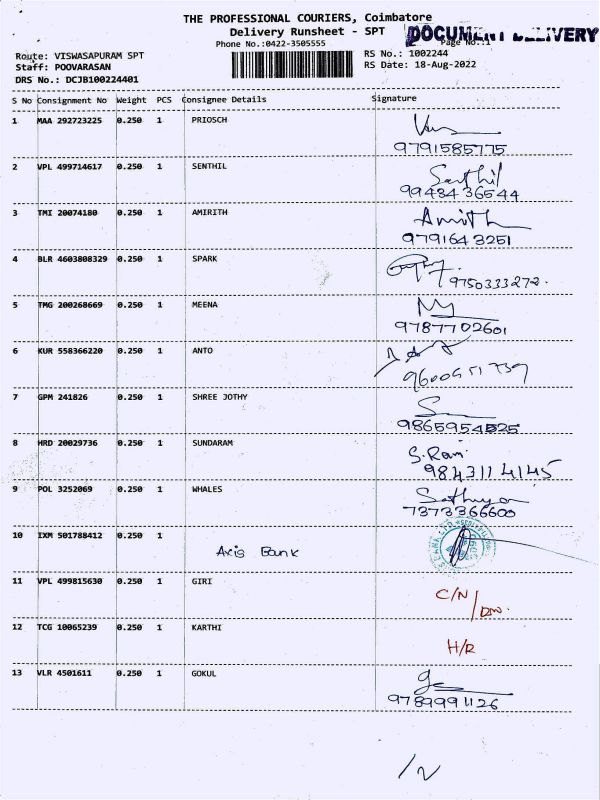 THE PROFESSIONAL COURIERS, Coimbatore
Delivery Runsheet - SPT
DOCUMENT DELIVERY
Phone No.:0422-3505555
Page No.:1
Route: VISWASAPURAM SPT
RS No.: 1002244
Staff: POOVARASAN
RS Date: 18-Aug-2022
DRS No.: DCJB100224401
S No Consignment No Weight PCS Consignee Details Signature
1 MAA 292723225 0.250 1 PRIOSCH
9791585775
2 VPL 499714617 0.250 1 SENTHIL Senthil
9943436544
3 TMI 20074180 0.250 1 AMIRITH Amirith
9791643251
4 BLR 4603808329 0.250 1 SPARK
9750333272.
5 TMG 200268669 0.250 1 MEENA
9787702601
6 KUR 558366220 0.250 1 ANTO
7 GPM 241826 0.250 1 SHREE JOTHY
8 HRD 20029736 0.250 1 SUNDARAM S.Ram
9843114145
9 POL 3252069 0.250 1 WHALES Sathya
7373366600
10 IXM 501788412 0.250 1
Axis Bank
11 VPL 499815630 0.250 1 GIRI C/N
12 TCG 10065239 0.250 1 KARTHI H/R
13 VLR 4501611 0.250 1 GOKUL
9789991126